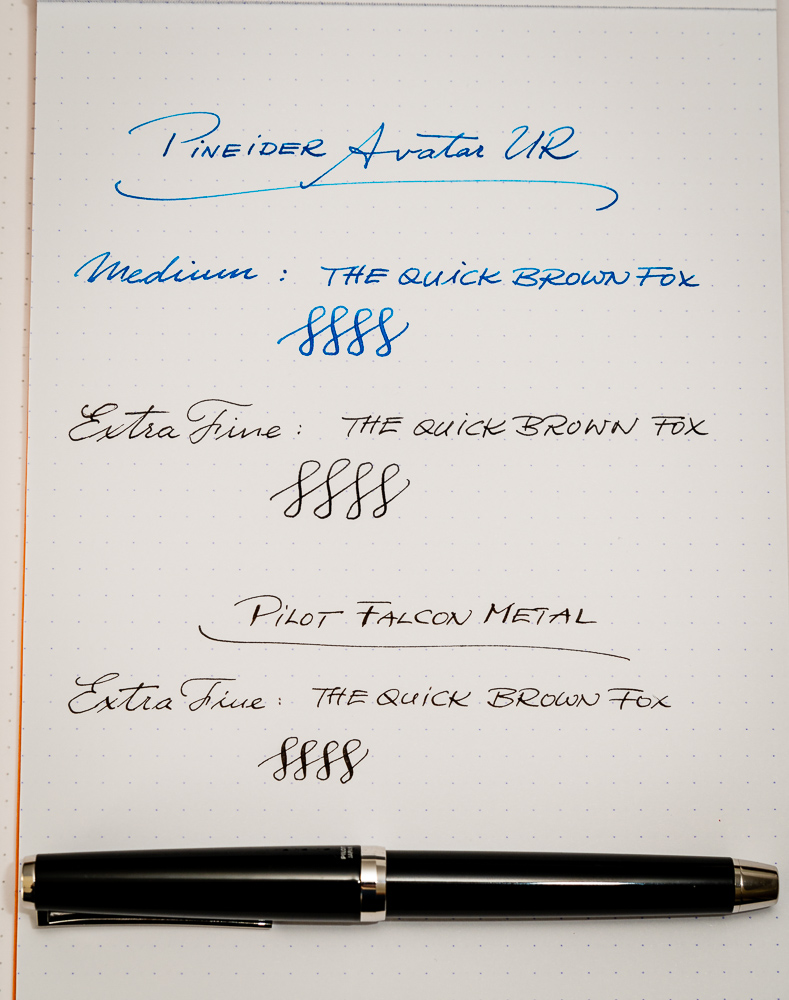 PiNEiDER Avatar UR
Medium : THE QUiCK BROWN FOX
Extra Fine : THE QUiCK BROWN FOX
PiLOT FALCON METAL
Extra Fine : THE QUiCK BROWN FOX